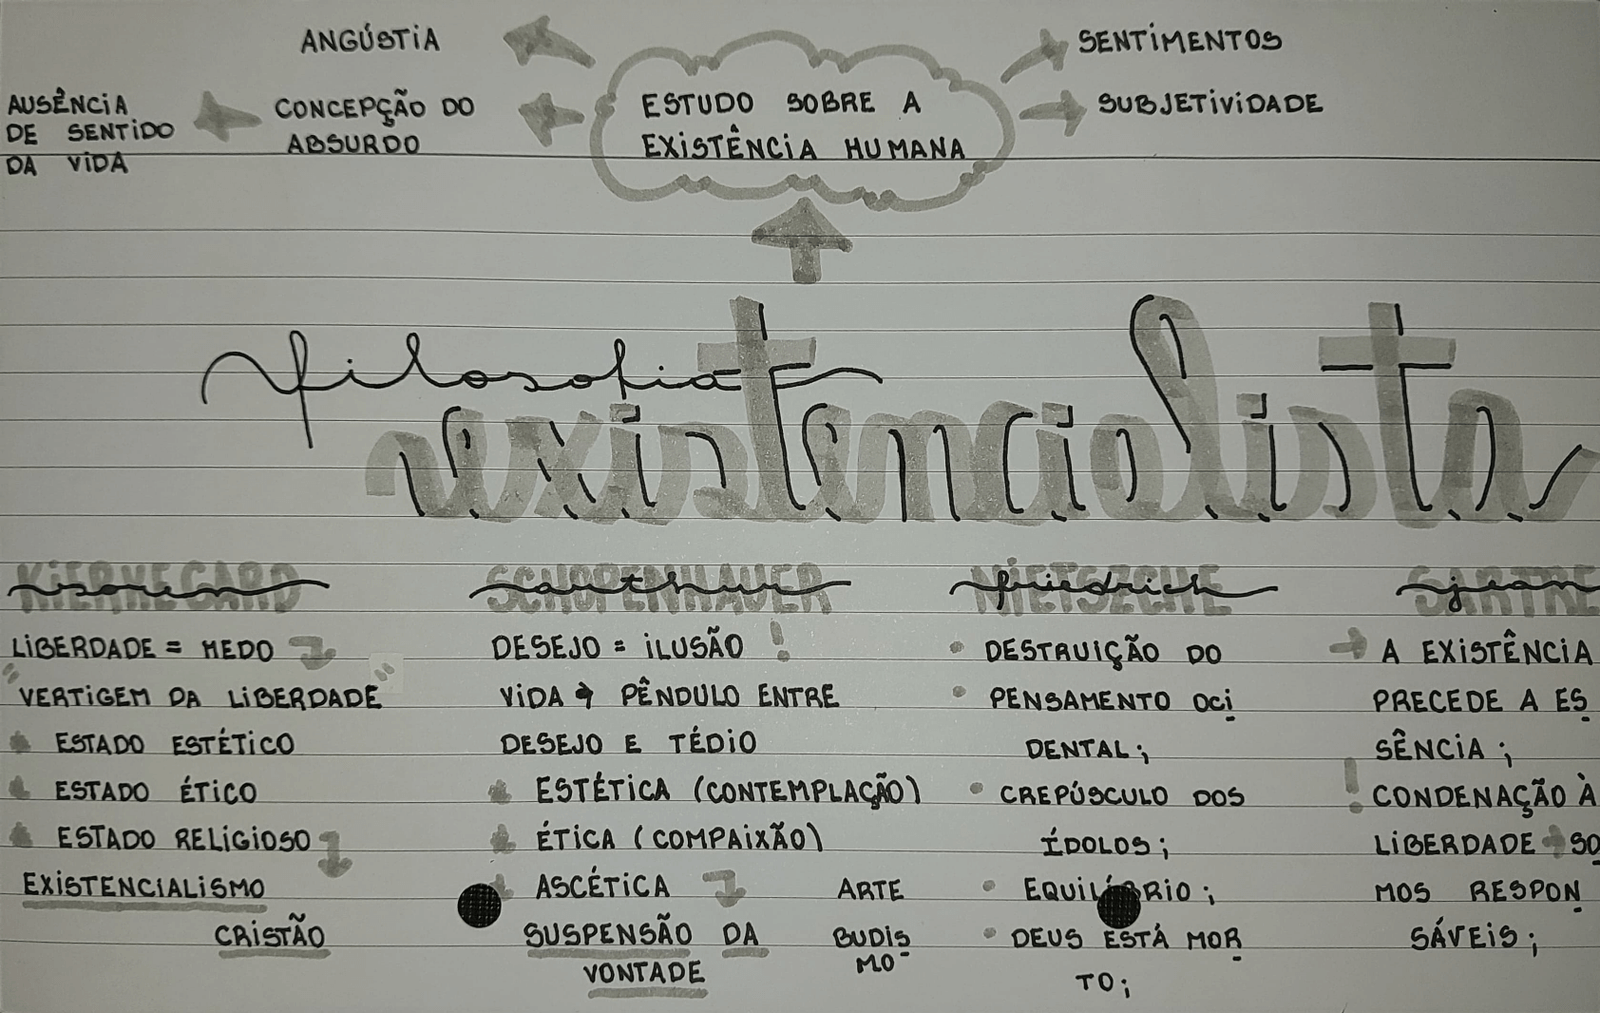 ANGÚSTIA
SENTIMENTOS
AUSÊNCIA
DE SENTIDO
DA VIDA
CONCEPÇÃO DO
ABSURDO
ESTUDO SOBRE A
EXISTÊNCIA HUMANA
SUBJETIVIDADE
filosofia
existencialista
KIERKEGARD
soren
LIBERDADE = MEDO
"VERTIGEM DA LIBERDADE"
ESTADO ESTÉTICO
ESTADO ÉTICO
ESTADO RELIGIOSO
EXISTENCIALISMO
CRISTÃO
SCHOPENHAUER
arthur
DESEJO = ILUSÃO !
VIDA → PÊNDULO ENTRE
DESEJO E TÉDIO
ESTÉTICA (CONTEMPLAÇÃO)
ÉTICA (COMPAIXÃO)
ASCÉTICA
SUSPENSÃO DA
VONTADE
ARTE
BUDIS-
MO
NIETSZCHE
friedrich
• DESTRUIÇÃO DO
• PENSAMENTO OCI-
DENTAL;
• CREPÚSCULO DOS
ÍDOLOS;
• EQUILÍBRIO;
• DEUS ESTÁ MOR-
TO;
SARTRE
jean
→ A EXISTÊNCIA
PRECEDE A ES-
SÊNCIA;
! CONDENAÇÃO À
LIBERDADE → SO-
MOS RESPON-
SÁVEIS;